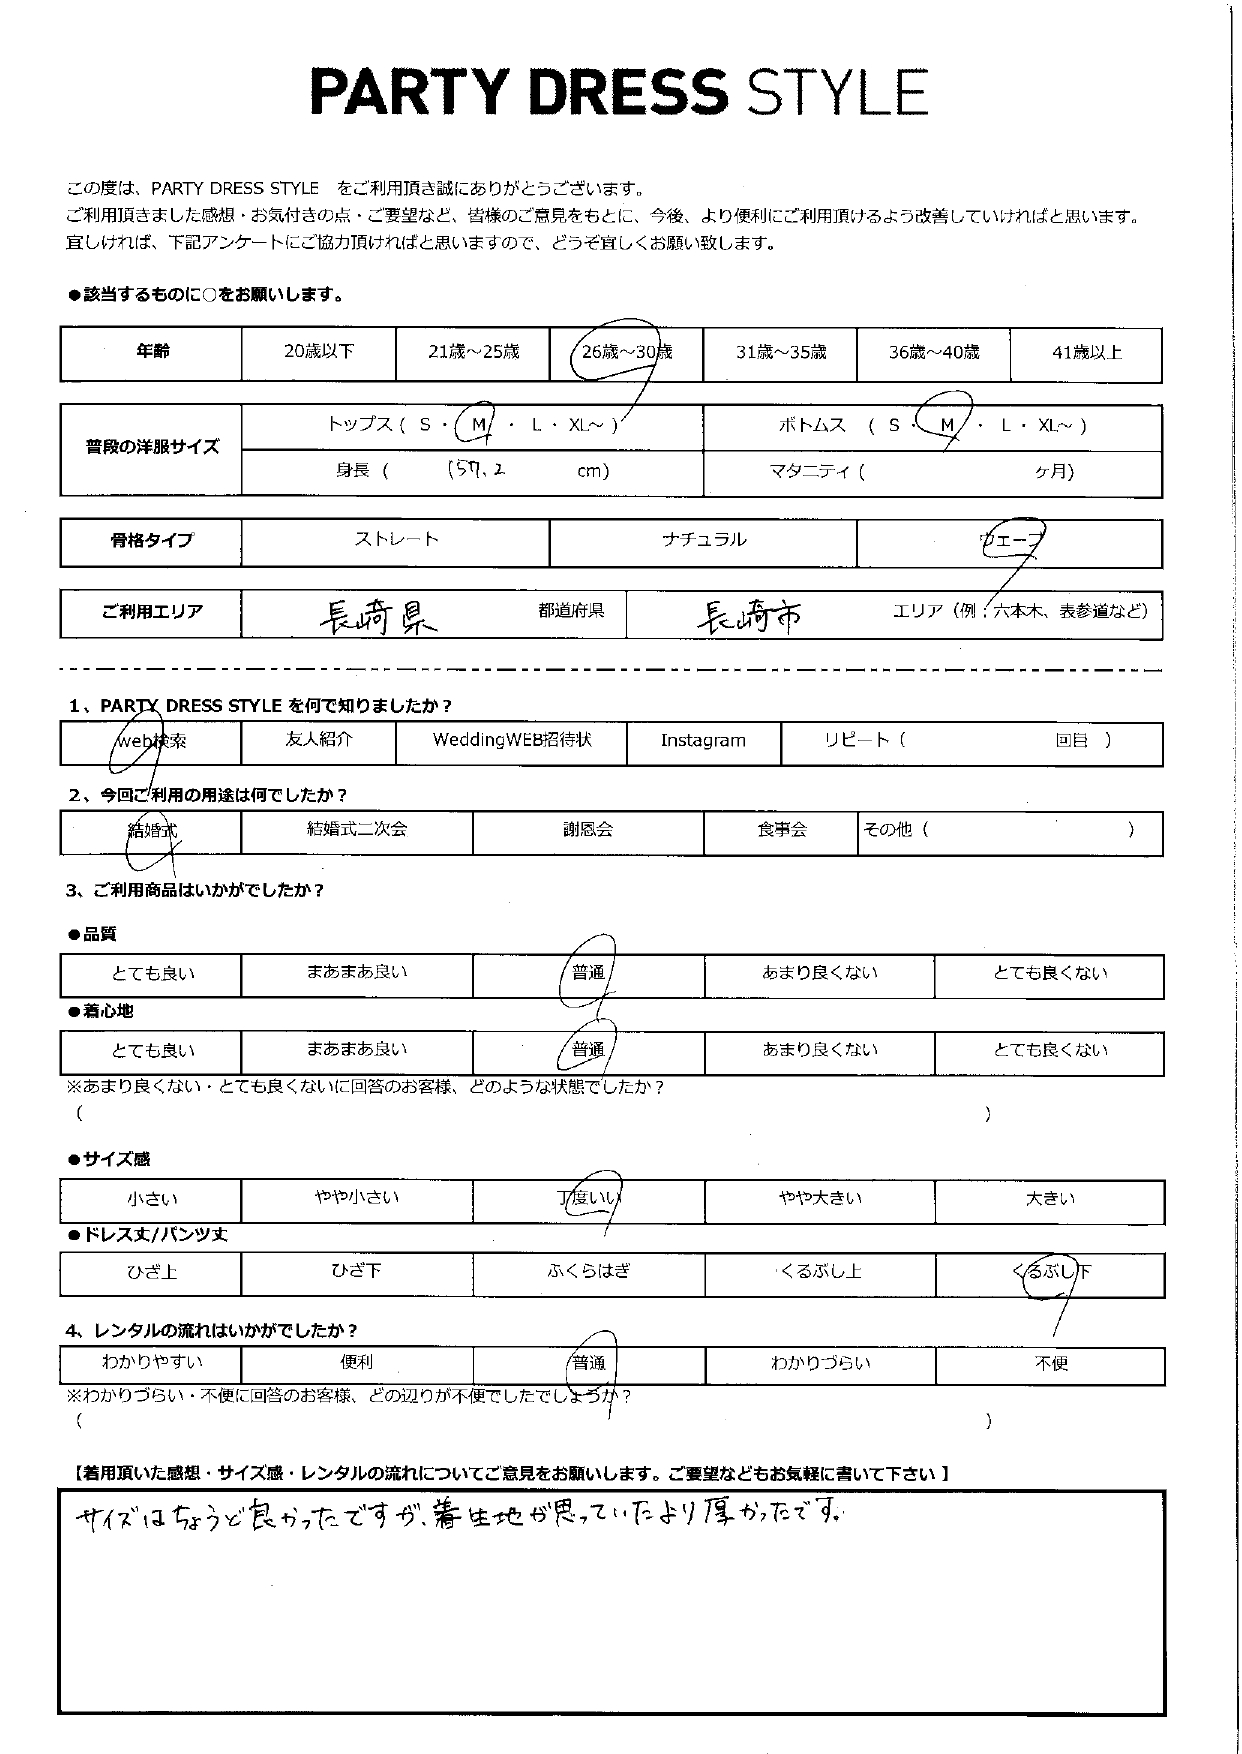 PARTY DRESS STYLE
この度は、PARTY DRESS STYLE　をご利用頂き誠にありがとうございます。
ご利用頂きました感想・お気付きの点・ご要望など、皆様のご意見をもとに、今後、より便利にご利用頂けるよう改善していければと思います。
宜しければ、下記アンケートにご協力頂ければと思いますので、どうぞ宜しくお願い致します。
●該当するものに○をお願いします。
年齢 20歳以下 21歳～25歳 26歳～30歳 31歳～35歳 36歳～40歳 41歳以上
普段の洋服サイズ トップス ( S ・ M ・ L ・ XL～ ) ボトムス ( S ・ M ・ L ・ XL～ )
身長 ( 157.2 cm) マタニティ ( ヶ月)
骨格タイプ ストレート ナチュラル ウェーブ
ご利用エリア 長崎県 都道府県 長崎市 エリア（例：六本木、表参道など）
1、PARTY DRESS STYLE を何で知りましたか？
web検索 友人紹介 WeddingWEB招待状 Instagram リピート（ 回目 ）
2、今回ご利用の用途は何でしたか？
結婚式 結婚式二次会 謝恩会 食事会 その他（ ）
3、ご利用商品はいかがでしたか？
●品質
とても良い まあまあ良い 普通 あまり良くない とても良くない
●着心地
とても良い まあまあ良い 普通 あまり良くない とても良くない
※あまり良くない・とても良くないに回答のお客様、どのような状態でしたか？
( )
●サイズ感
小さい やや小さい 丁度いい やや大きい 大きい
●ドレス丈/パンツ丈
ひざ上 ひざ下 ふくらはぎ くるぶし上 くるぶし下
4、レンタルの流れはいかがでしたか？
わかりやすい 便利 普通 わかりづらい 不便
※わかりづらい・不便に回答のお客様、どの辺りが不便でしたでしょうか？
( )
【着用頂いた感想・サイズ感・レンタルの流れについてご意見をお願いします。ご要望などもお気軽に書いて下さい 】
サイズはちょうど良かったですが、着生地が思っていたより厚かったです。